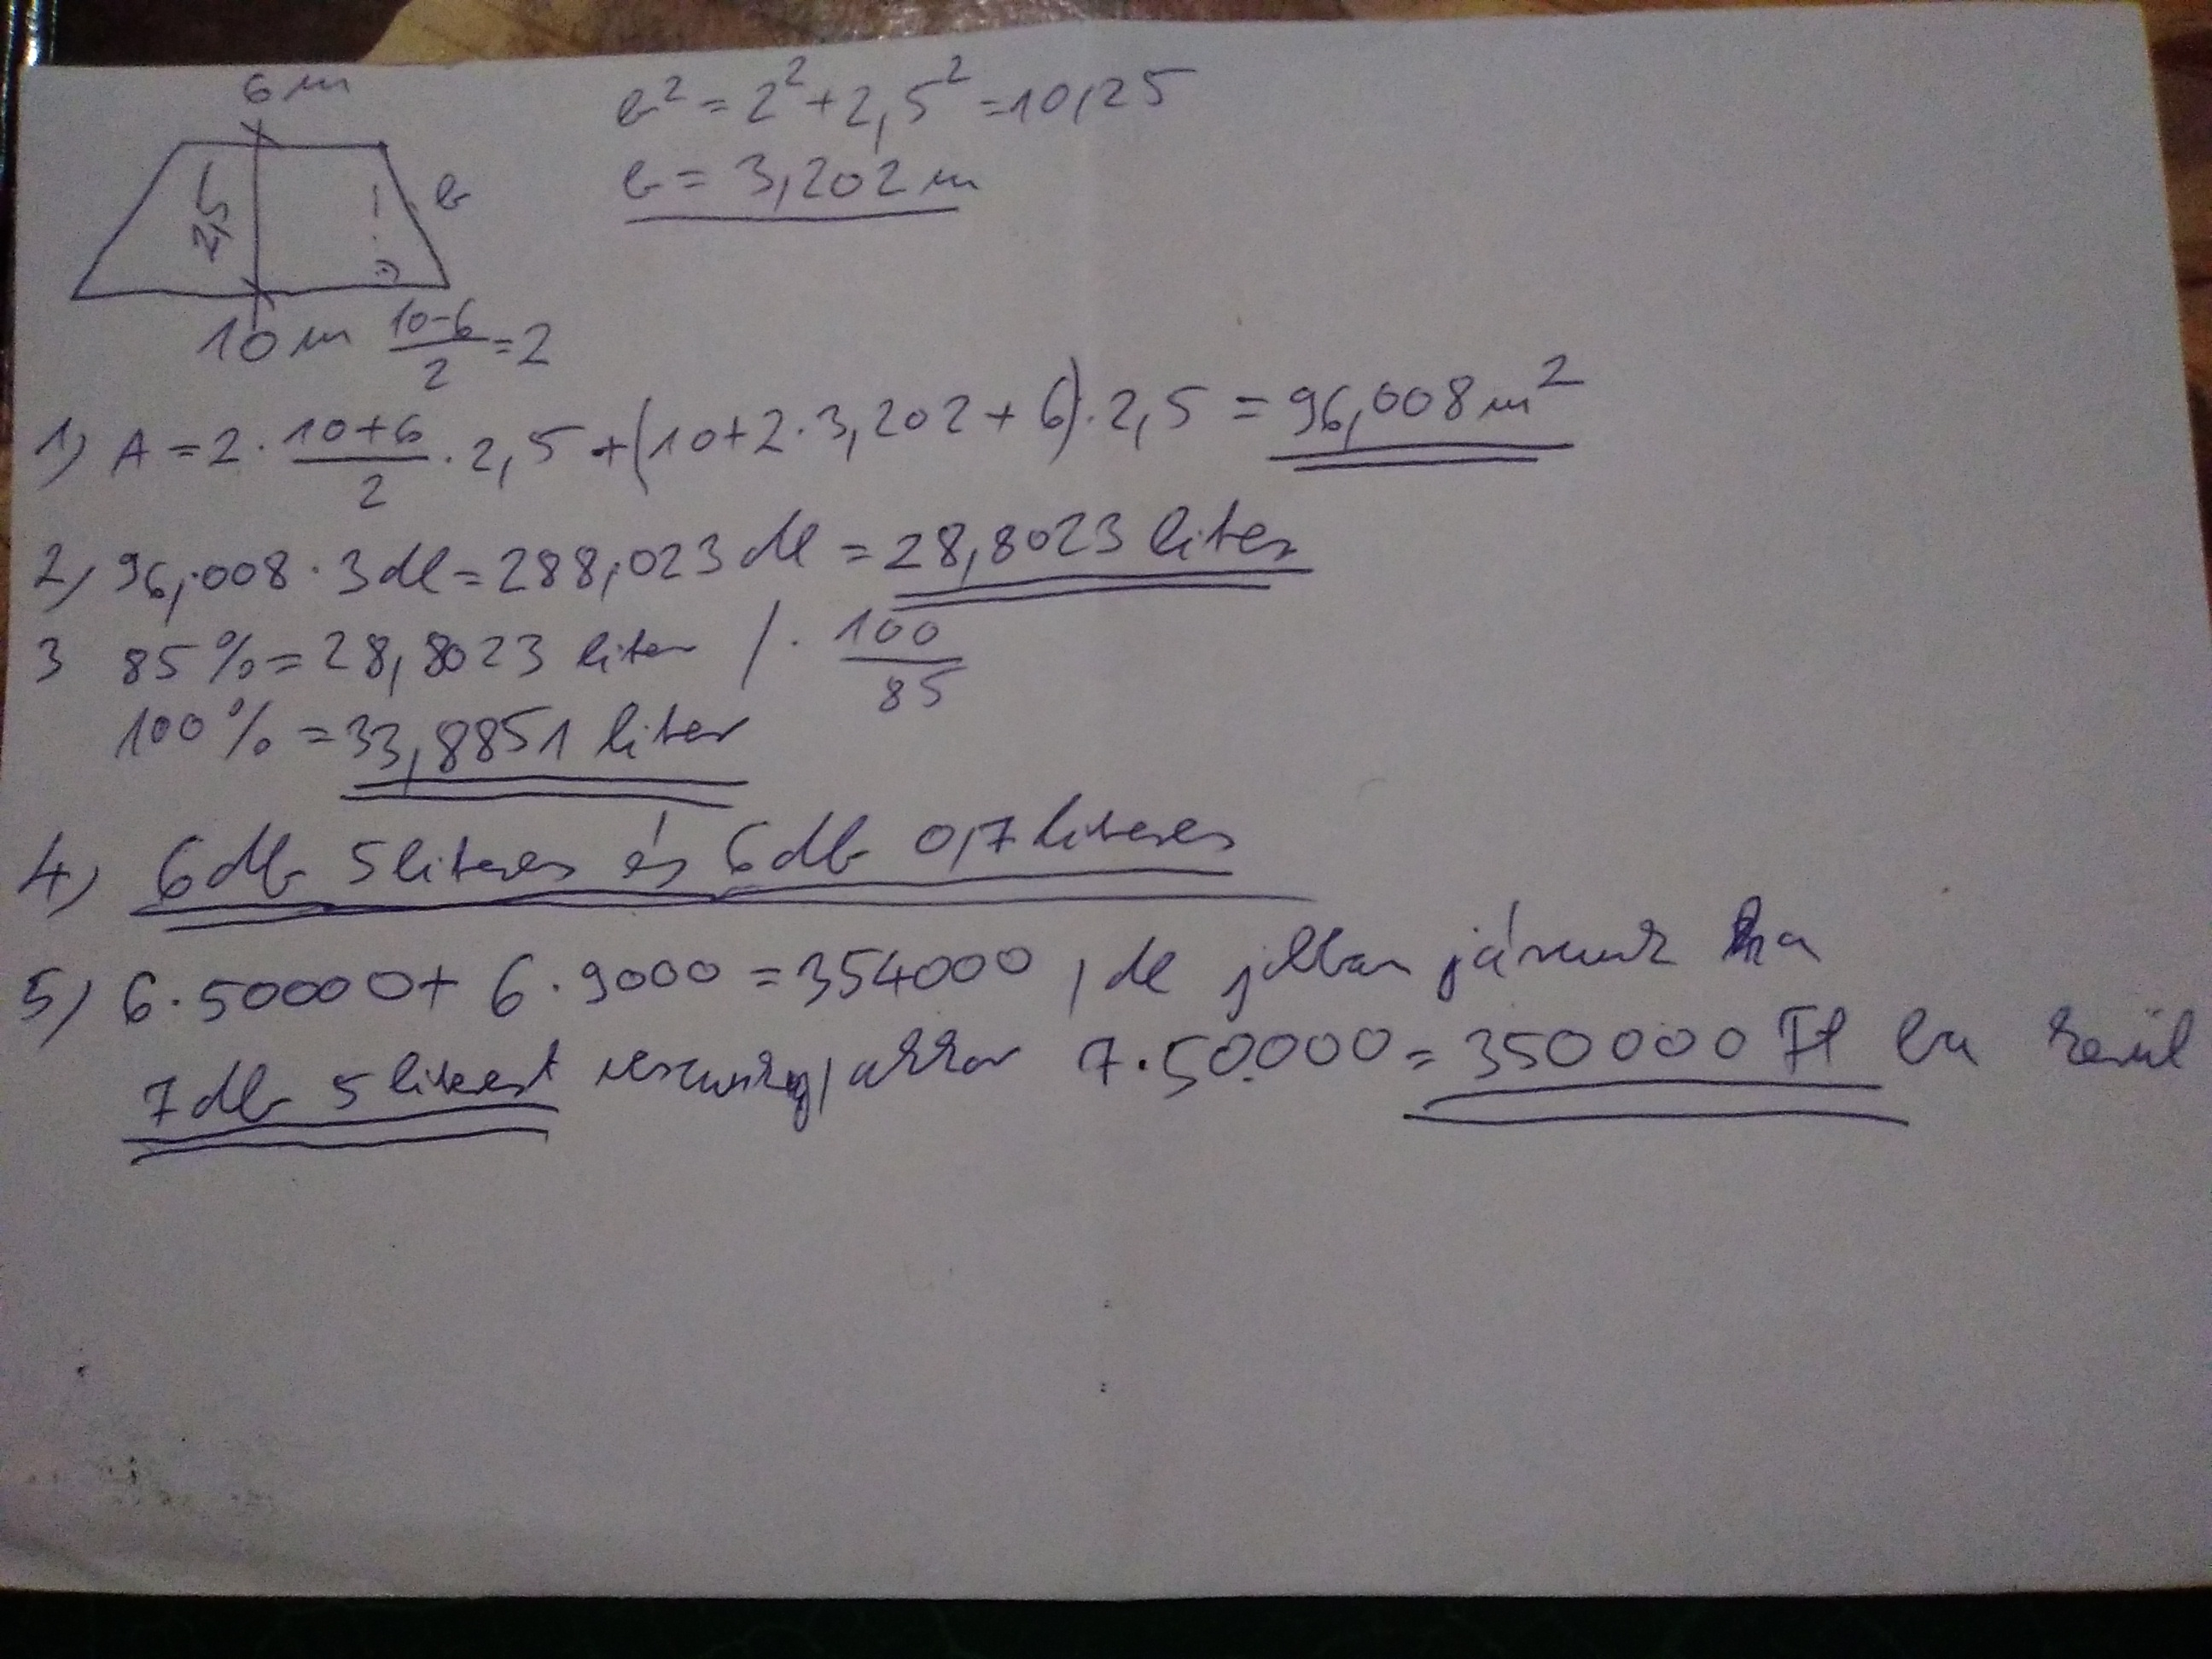 6 m
b² = 2² + 2,5² = 10,25
b = 3,202 m
2,5
b
10 m (10-6)/2 = 2
1) A = 2 · (10+6)/2 · 2,5 + (10+2·3,202+6)·2,5 = 96,008 m²
2) 96,008 · 3 dl = 288,023 dl = 28,8023 liter
3 85 % = 28,8023 liter / · 100/85
100 % = 33,8851 liter
4) 6 db 5 literes és 6 db 0,7 literes
5) 6·50000 + 6·9000 = 354000, de jobban járunk ha
7 db 5 literest veszünk, akkor 7·50.000 = 350000 Ft ba kerül